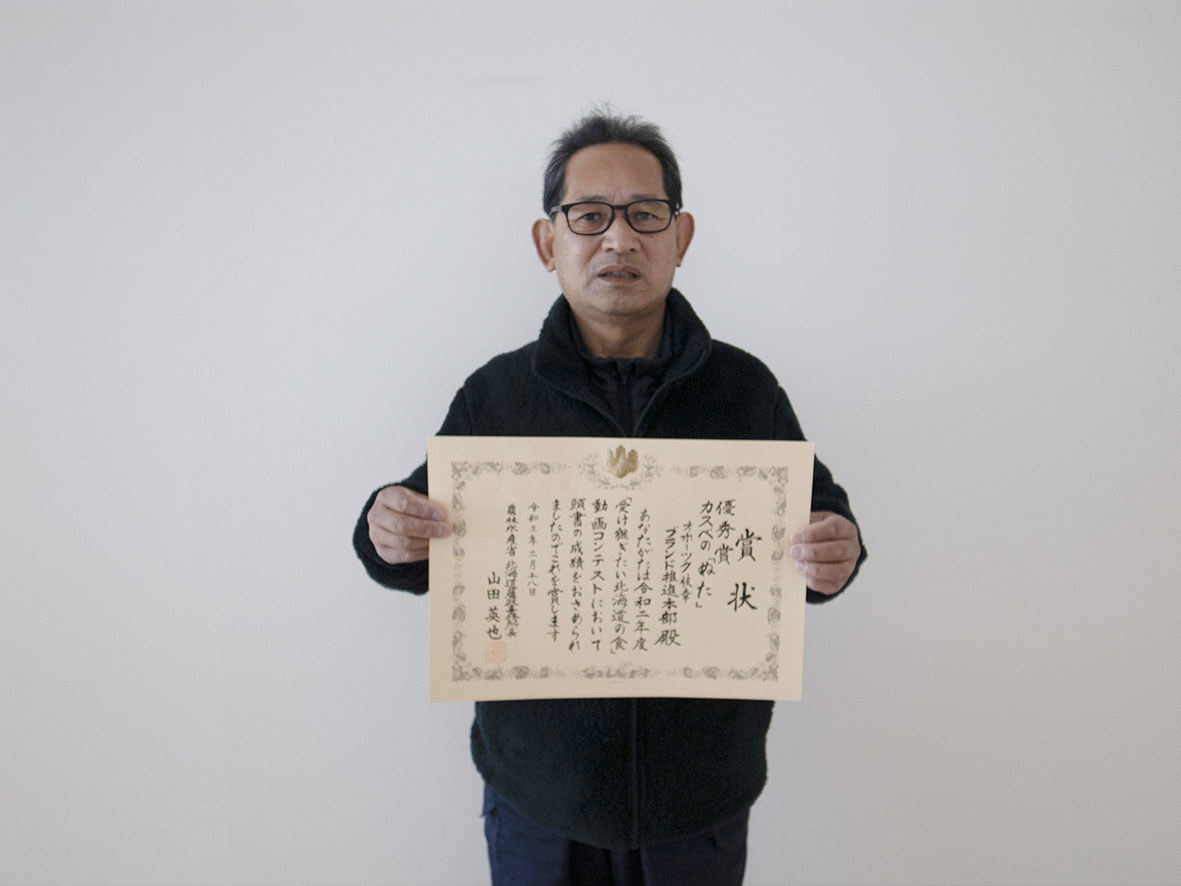 賞状
優秀賞
カスベの「ぬた」
オホーツク枝幸
ブランド推進本部殿
あなたがたは令和二年度
「受け継ぎたい北海道の食」
動画コンテストにおいて
頭書の成績をおさめられ
ましたのでこれを賞します
令和三年二月十八日
農林水産省北海道農政事務所長
山田英也